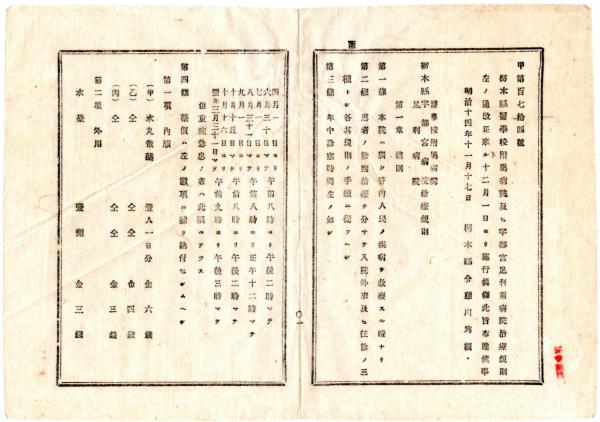 甲第百七拾四號
栃木縣醫學校附屬病院及ヒ宇都宮足利兩病院治療規則
左ノ通改正來ル十二月一日ヨリ施行候條此旨布達候事
明治十四年十一月十七日 栃木縣令藤川爲親
醫學校附屬病院
栃木縣宇都宮病院治療規則
足利病院
第一章 總則
第一條 本院ハ廣ク管內人民ノ疾病ヲ救療スル所ナリ
第二條 患者ノ診察治療ヲ分テ入院外來及ヒ往診ノ三
種トシ各其規則ノ手續ニ從フヘシ
第三條 年中診察時間左ノ如シ
四月一日ヨリ
六月三十日マテ 午前八時ヨリ午後二時マテ
七月一日ヨリ
八月三十一日マテ 午前八時ヨリ正午十二時マテ
九月一日ヨリ
十月十五日マテ 午前八時ヨリ午後二時マテ
十月十六日ヨリ
翌年三月三十一日マテ 午前九時ヨリ午後三時マテ
但重症急患ノ者ハ此限ニアラス
第四條 藥價ハ左ノ數項ニ據リ納付セシムヘシ
第一項 內服
(甲) 水丸散藥 壹人一日分 金六錢
(乙) 仝 仝 金四錢
(丙) 仝 仝 金三錢
第二項 外用
水藥 壹劑 金三錢